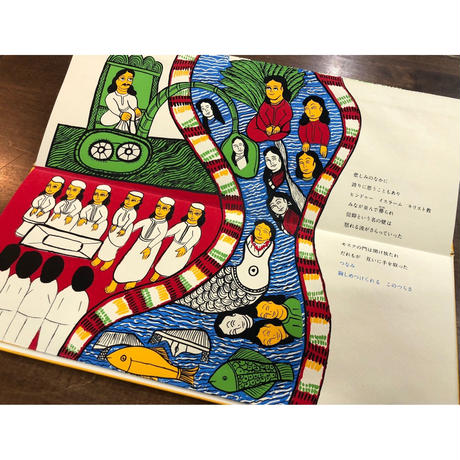 悲しみのなかに
誇りに思うこともあり
ヒンドゥー イスラーム キリスト教
みなが並んで葬られ
信仰という名の壁は
怒れる波がさらっていった
モスクの門は開け放たれ
だれもが 互いに手を取った
つなみ
胸しめつけられる このつらさ